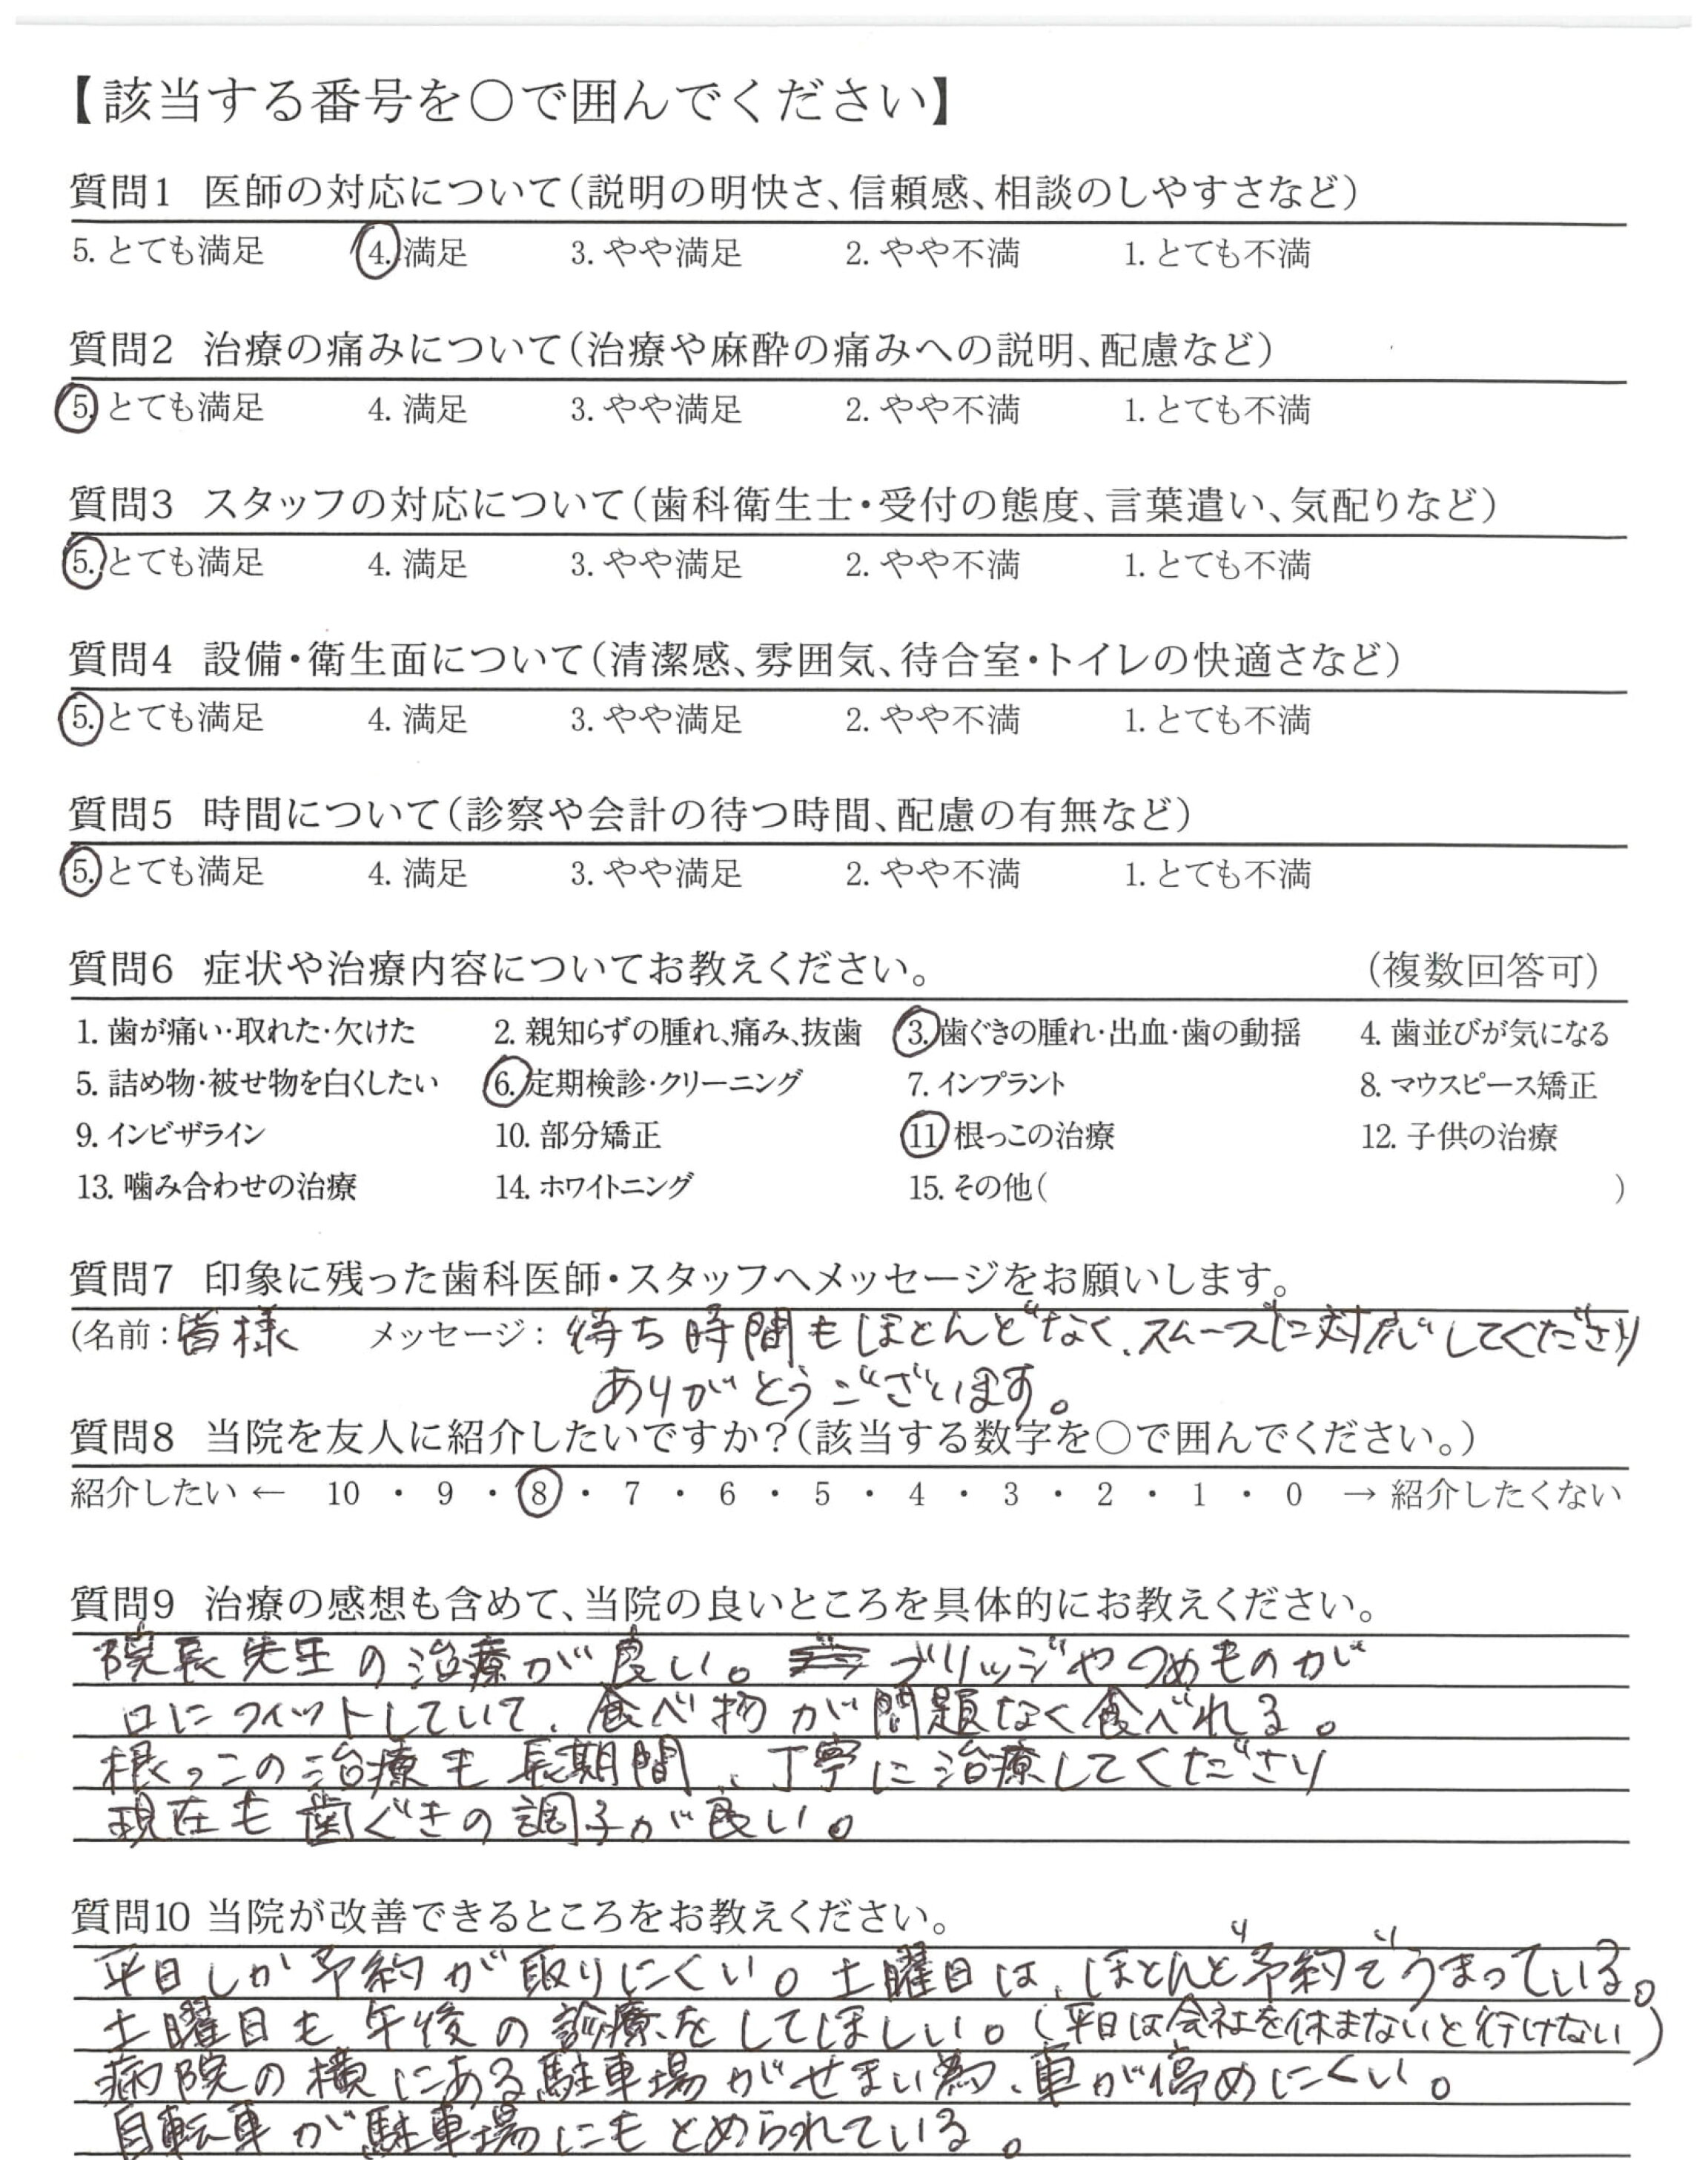 【該当する番号を○で囲んでください】
質問1 医師の対応について(説明の明快さ、信頼感、相談のしやすさなど)
5. とても満足 4. 満足 3. やや満足 2. やや不満 1. とても不満
質問2 治療の痛みについて(治療や麻酔の痛みへの説明、配慮など)
5. とても満足 4. 満足 3. やや満足 2. やや不満 1. とても不満
質問3 スタッフの対応について(歯科衛生士・受付の態度、言葉遣い、気配りなど)
5. とても満足 4. 満足 3. やや満足 2. やや不満 1. とても不満
質問4 設備・衛生面について(清潔感、雰囲気、待合室・トイレの快適さなど)
5. とても満足 4. 満足 3. やや満足 2. やや不満 1. とても不満
質問5 時間について(診察や会計の待つ時間、配慮の有無など)
5. とても満足 4. 満足 3. やや満足 2. やや不満 1. とても不満
質問6 症状や治療内容についてお教えください。 (複数回答可)
1. 歯が痛い・取れた・欠けた 2. 親知らずの腫れ、痛み、抜歯 3. 歯ぐきの腫れ・出血・歯の動揺 4. 歯並びが気になる
5. 詰め物・被せ物を白くしたい 6. 定期検診・クリーニング 7. インプラント 8. マウスピース矯正
9. インビザライン 10. 部分矯正 11. 根っこの治療 12. 子供の治療
13. 噛み合わせの治療 14. ホワイトニング 15. その他( )
質問7 印象に残った歯科医師・スタッフへメッセージをお願いします。
(名前:皆様 メッセージ:待ち時間もほとんどなく、スムーズに対応してくださり
ありがとうございます。
質問8 当院を友人に紹介したいですか?(該当する数字を○で囲んでください。)
紹介したい ← 10 ・ 9 ・ 8 ・ 7 ・ 6 ・ 5 ・ 4 ・ 3 ・ 2 ・ 1 ・ 0 → 紹介したくない
質問9 治療の感想も含めて、当院の良いところを具体的にお教えください。
院長先生の治療が良い。ブリッジやつめものが
口にフィットしていて、食べ物が問題なく食べれる。
根っこの治療も長期間、丁寧に治療してくださり
現在も歯ぐきの調子が良い。
質問10 当院が改善できるところをお教えください。
平日しか予約が取りにくい。土曜日は、ほとんど予約でうまっている。
土曜日も午後の診療をしてほしい。(平日は会社を休まないと行けない)
病院の横にある駐車場がせまい為、車が停めにくい。
自転車が駐車場にもとめられている。